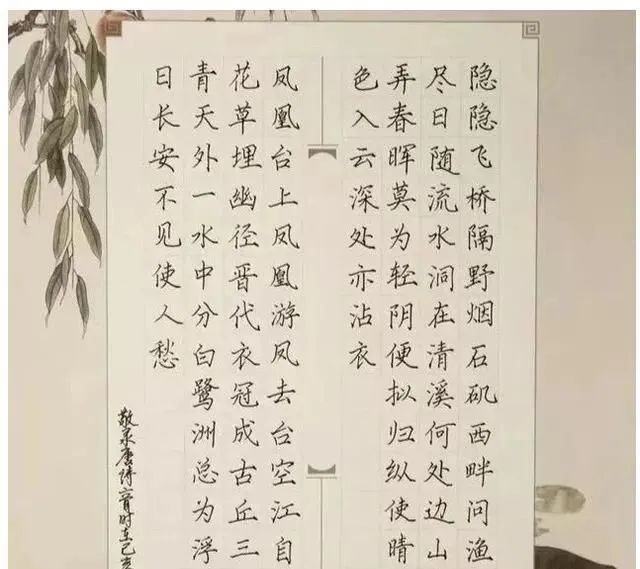 隐隐飞桥隔野烟石矶西畔问渔
尽日随流水洞在清溪何处边山
弄春晖莫为轻阴便拟归纵使晴
色入云深处亦沾衣
凤凰台上凤凰游凤去台空江自
花草埋幽径晋代衣冠成古丘三
青天外一水中分白鹭洲总为浮
日长安不见使人愁
敬录唐诗二首时在己亥